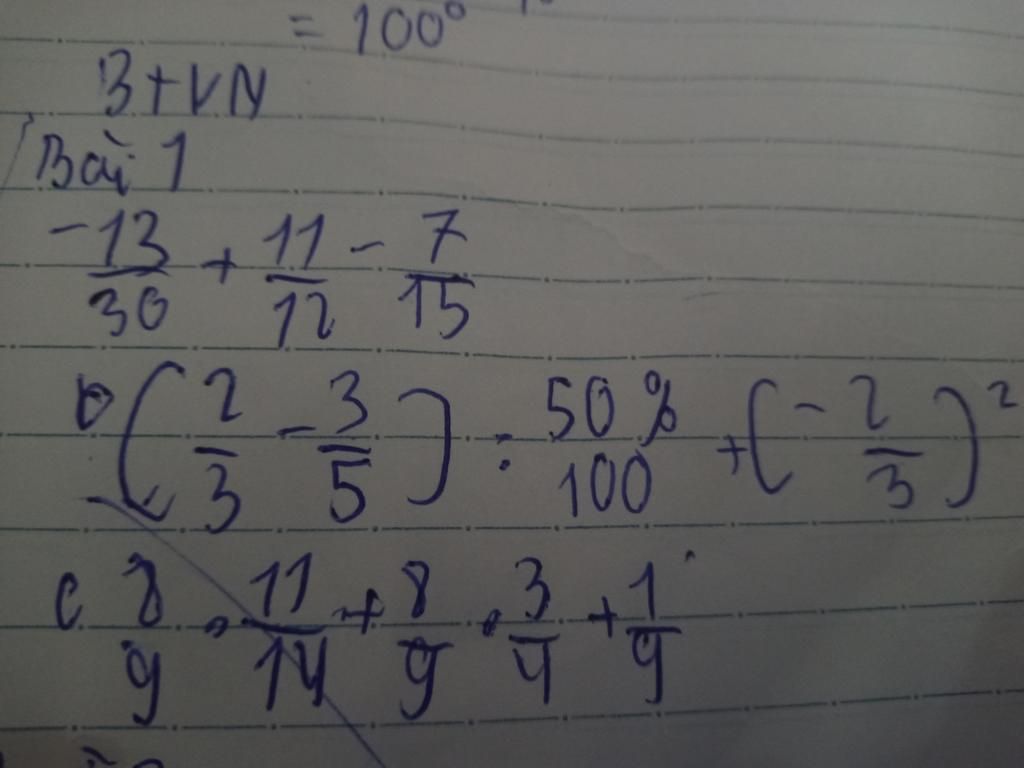 = 100°
BTVN
Bài 1
-13/30 + 11/12 - 7/15
b (2/3 - 3/5) : 50%/100 + (-2/3)²
c 8/9 . 11/14 + 8/9 . 3/4 + 1/9